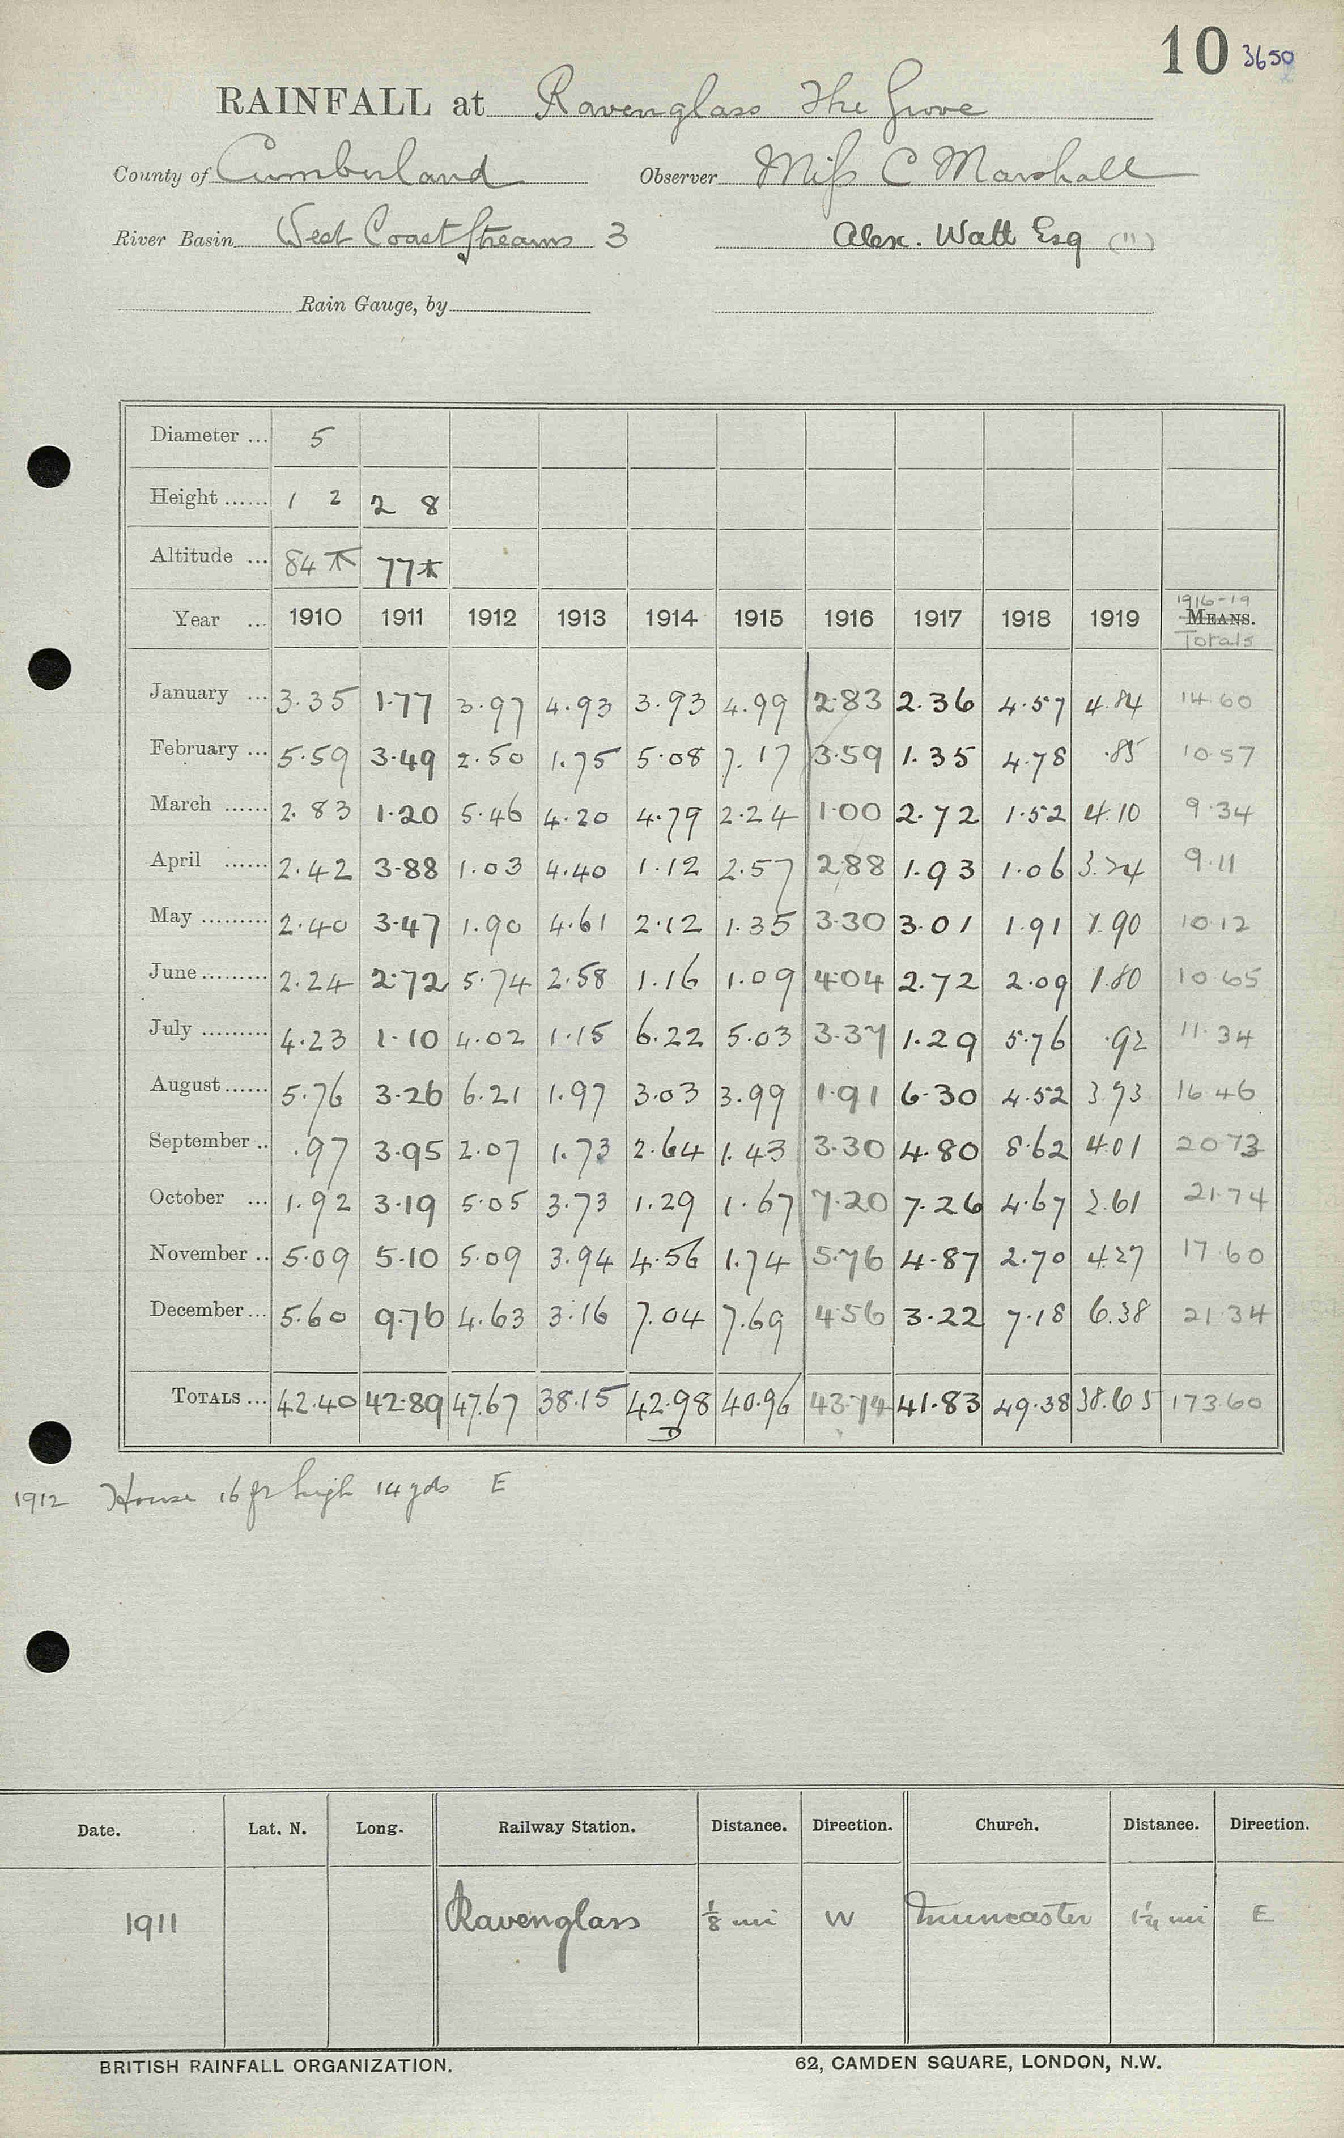 10 3650
RAINFALL at Ravenglass The Grove
County of Cumberland Observer Miss C Marshall
River Basin West Coast Streams 3 Alex. Watt Esq (")
Rain Gauge, by
Diameter ... 5
Height ...... 1 2 2 8
Altitude ... 84 * 77 *
1916-19
Year ... 1910 1911 1912 1913 1914 1915 1916 1917 1918 1919 MEANS.
Totals
January ... 3.35 1.77 3.97 4.93 3.93 4.99 2.83 2.36 4.57 4.84 14.60
February ... 5.59 3.49 2.50 1.75 5.08 7.17 3.59 1.35 4.78 .85 10.57
March ...... 2.83 1.20 5.46 4.20 4.79 2.24 1.00 2.72 1.52 4.10 9.34
April ...... 2.42 3.88 1.03 4.40 1.12 2.57 2.88 1.93 1.06 3.24 9.11
May ......... 2.40 3.47 1.90 4.61 2.12 1.35 3.30 3.01 1.91 1.90 10.12
June ......... 2.24 2.72 5.74 2.58 1.16 1.09 4.04 2.72 2.09 1.80 10.65
July ......... 4.23 1.10 4.02 1.15 6.22 5.03 3.37 1.29 5.76 .92 11.34
August ...... 5.76 3.26 6.21 1.97 3.03 3.99 1.91 6.30 4.52 3.73 16.46
September .. .97 3.95 2.07 1.73 2.64 1.43 3.30 4.80 8.62 4.01 20.73
October ... 1.92 3.19 5.05 3.73 1.29 1.67 7.20 7.26 4.67 2.61 21.74
November .. 5.09 5.10 5.09 3.94 4.56 1.74 5.76 4.87 2.70 4.27 17.60
December ... 5.60 9.76 4.63 3.16 7.04 7.69 4.56 3.22 7.18 6.38 21.34
TOTALS ... 42.40 42.89 47.67 38.15 42.98 40.96 43.74 41.83 49.38 38.65 173.60
D
1912 House 16 ft high 14 yds E
Date. Lat. N. Long. Railway Station. Distance. Direction. Church. Distance. Direction.
1911 Ravenglass 1/8 mi W Muncaster 1¼ mi E
BRITISH RAINFALL ORGANIZATION. 62, CAMDEN SQUARE, LONDON, N.W.